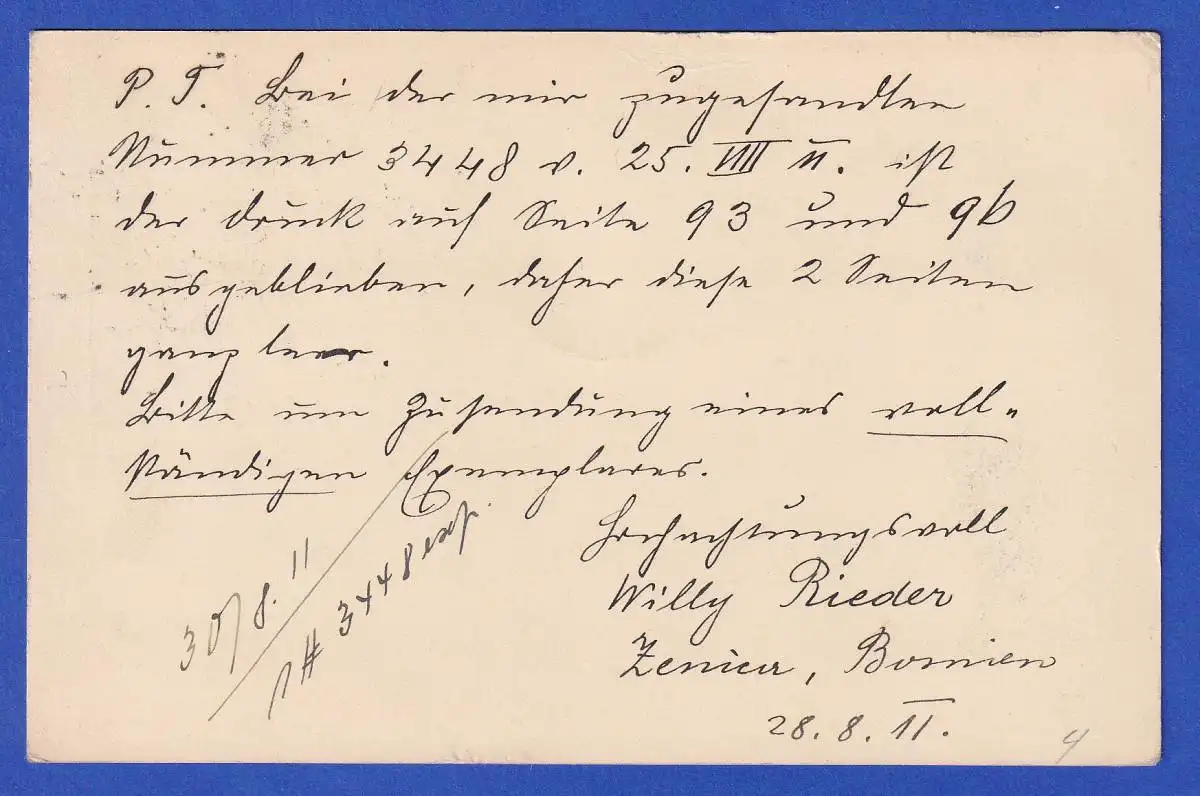 P. T. Bei der mir zugesandten
Nummer 3448 v. 25. VIII 11. ist
der Druck auf Seite 93 und 96
ausgeblieben, daher diese 2 Seiten
ganz leer.
Bitte um Zusendung eines voll=
ständigen Exemplares.
Hochachtungsvoll
Willy Rieder
Zenica, Bosnien
28. 8. 11.
30/8. 11
1 # 3448 exp.
4